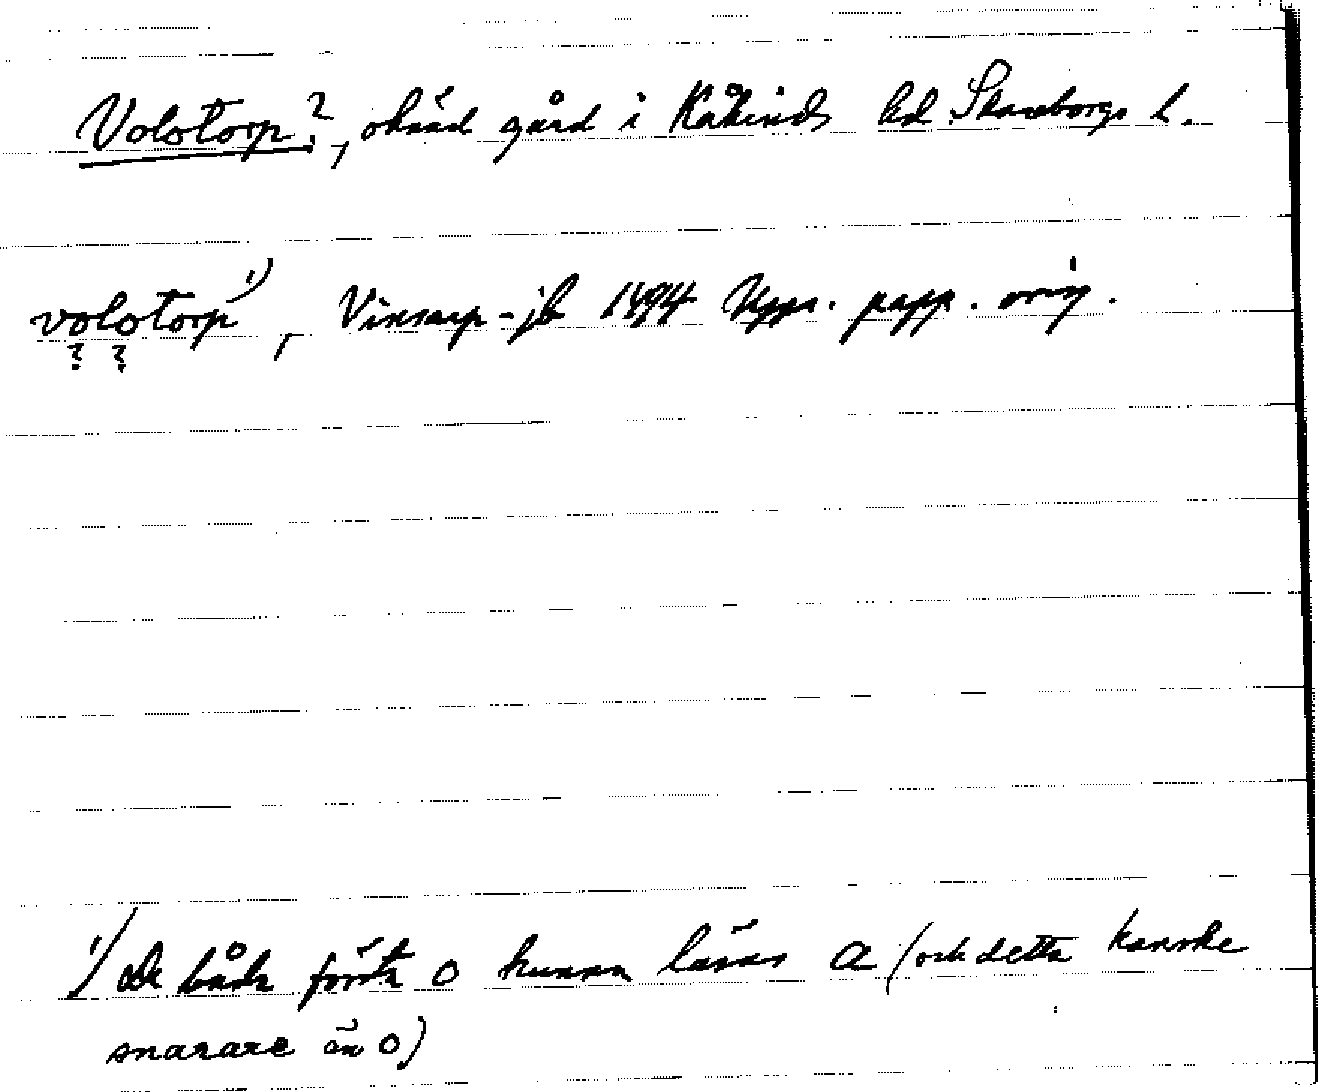 Volotorp?, okänd gård i Kåkinds hd Skaraborgs l.
volotorp 1), Vinsarp-jb 1494 Upps. papp. orig.
? ?
1) De båda första o kunna läsas a (och detta kanske
snarare än o)